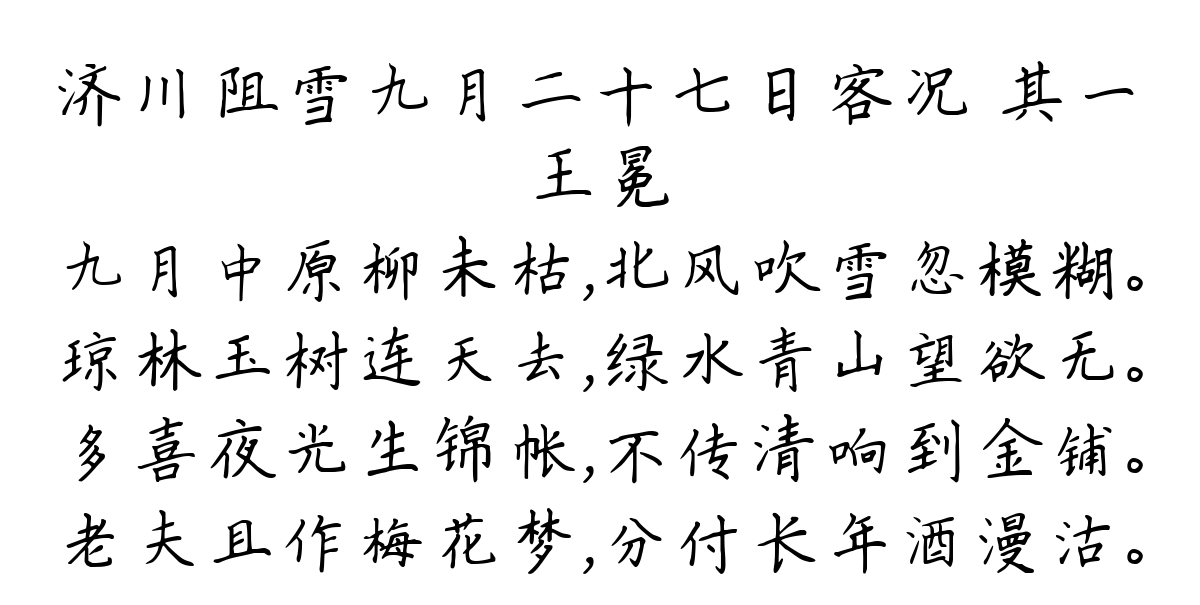 济川阻雪九月二十七日客况 其一
王冕
九月中原柳未枯,北风吹雪忽模糊。
琼林玉树连天去,绿水青山望欲无。
多喜夜光生锦帐,不传清响到金铺。
老夫且作梅花梦,分付长年酒漫沽。